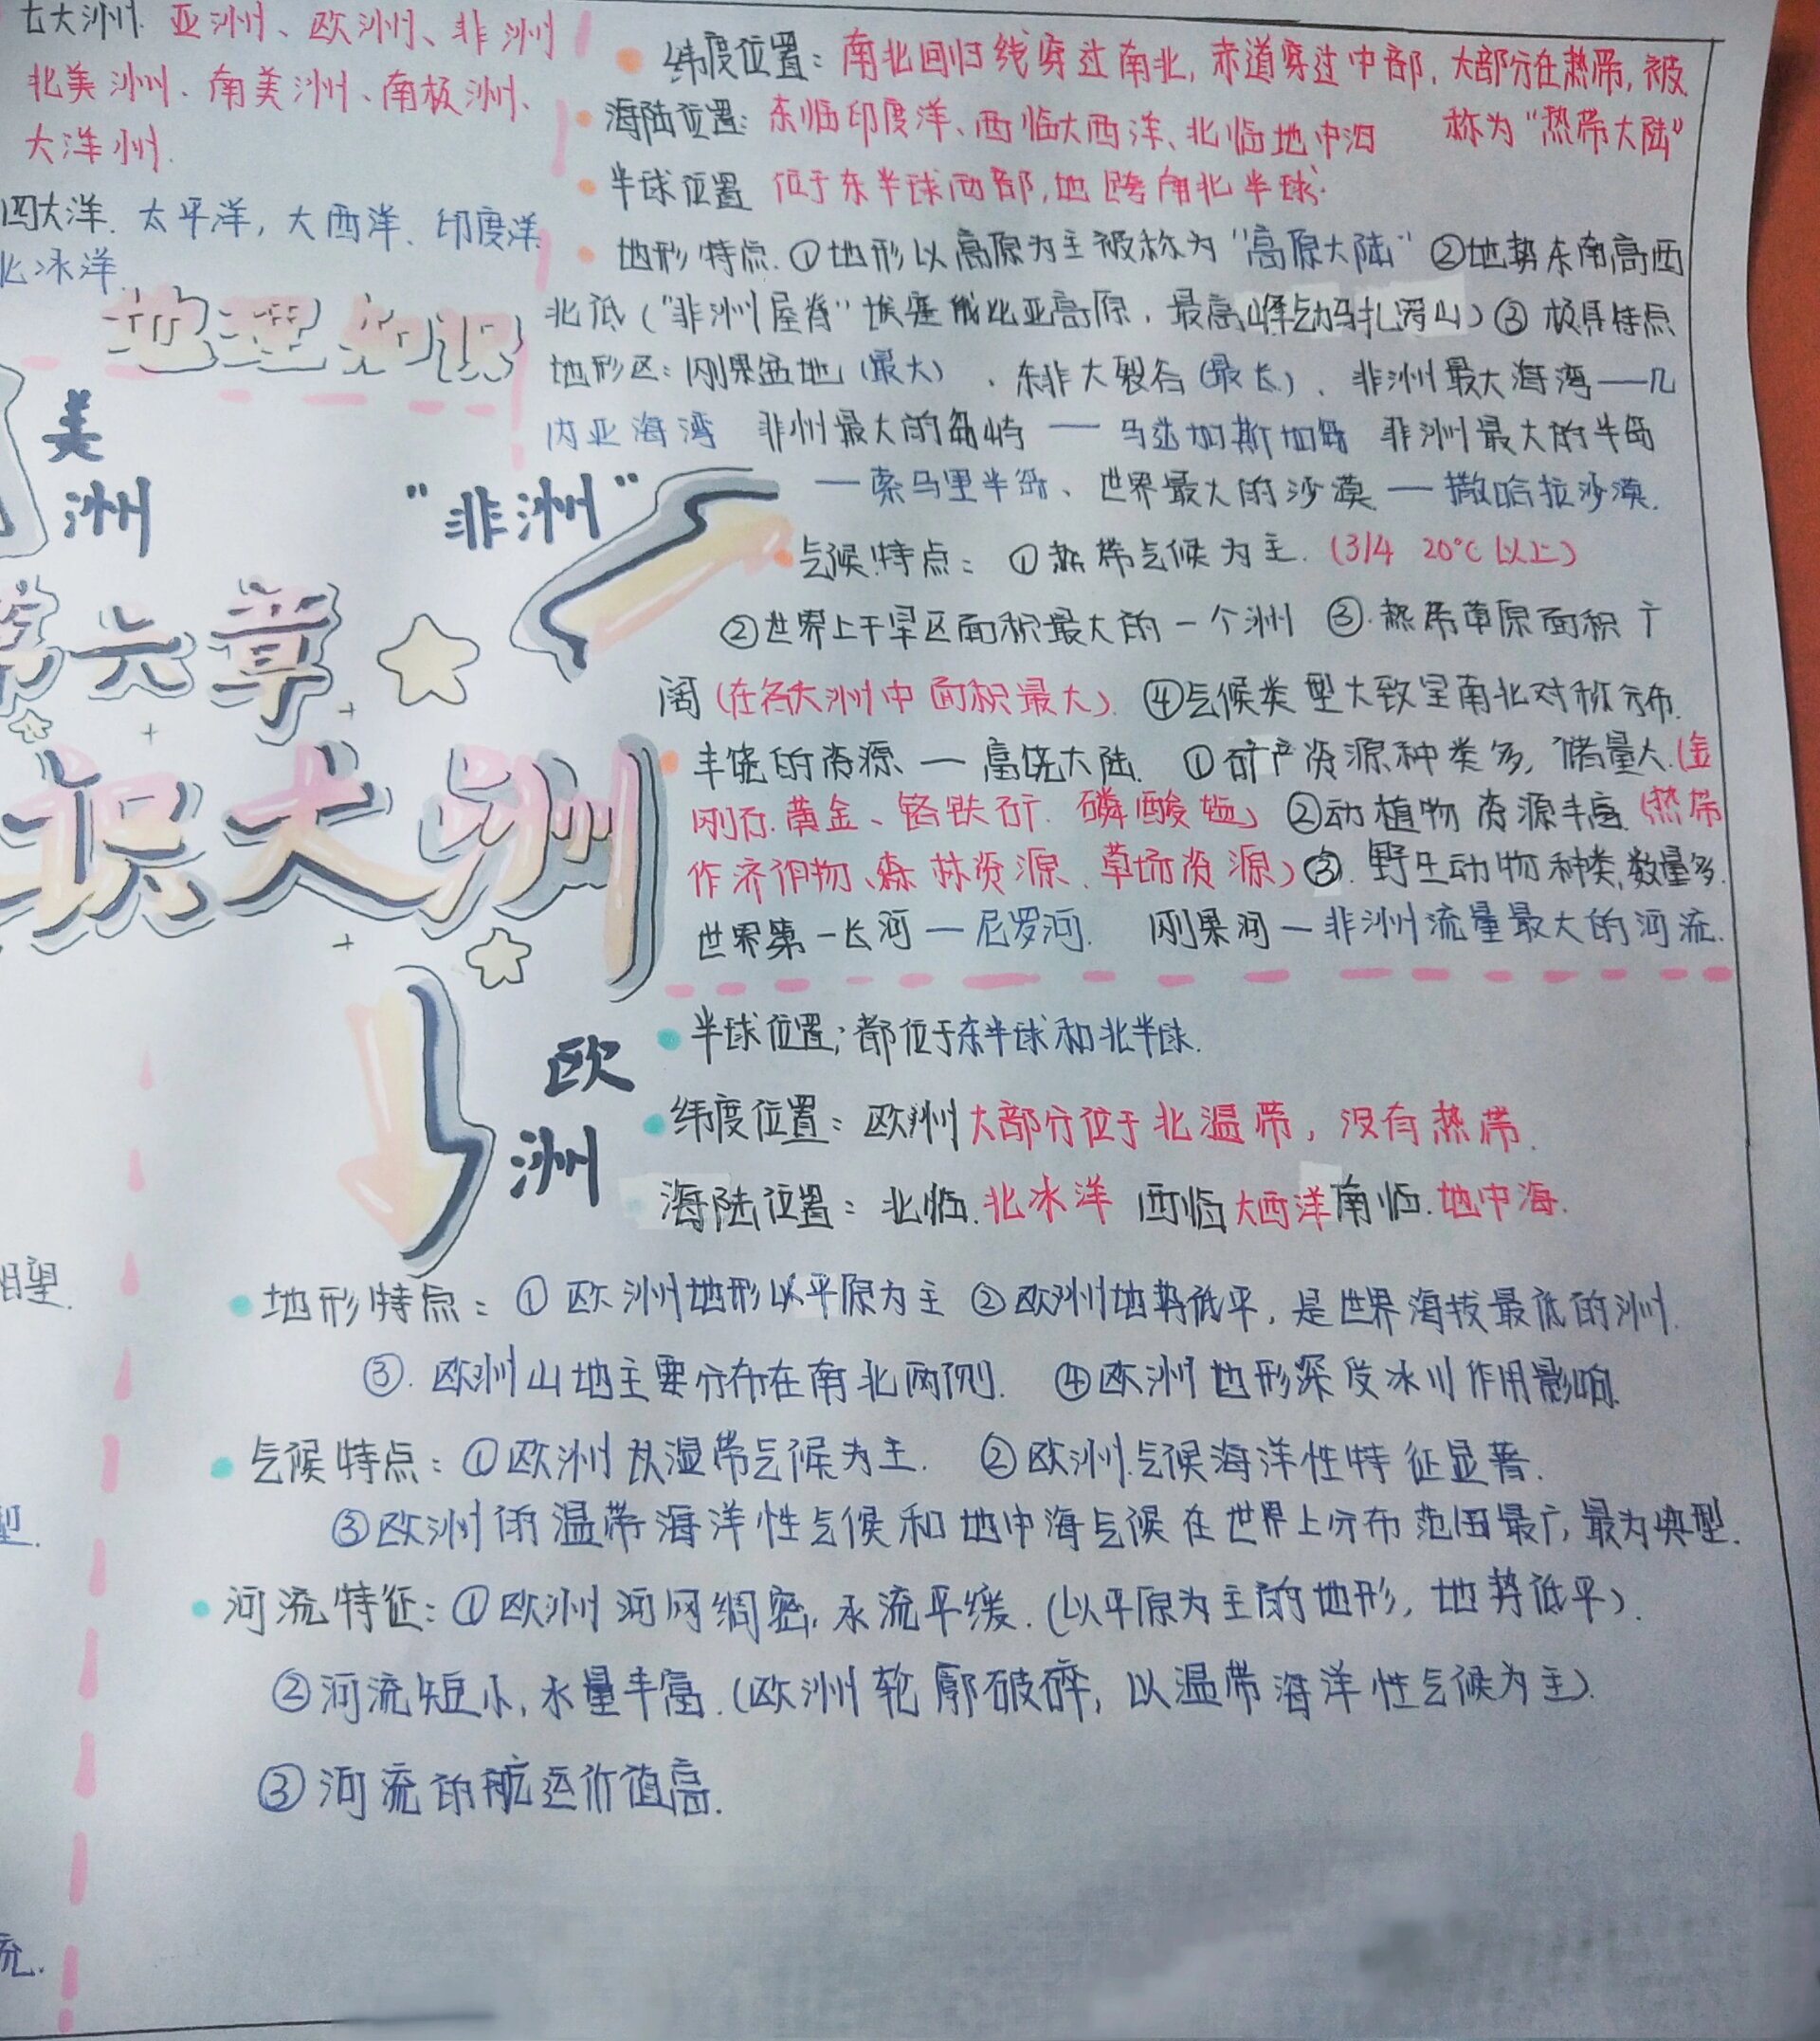 七大洲. 亚洲、欧洲、非洲
北美洲、南美洲、南极洲、
大洋州.
四大洋. 太平洋, 大西洋、印度洋
北冰洋.
地理知识
美
洲
"非洲"
第六章
识大洲
纬度位置: 南北回归线穿过南北, 赤道穿过中部, 大部分在热带, 被
称为"热带大陆"
海陆位置: 东临印度洋、西临大西洋、北临地中海
半球位置 位于东半球西部, 地跨南北半球.
地形特点. ①地形以高原为主被称为"高原大陆" ②地势东南高西
北低 ("非洲屋脊" 埃塞俄比亚高原, 最高峰乞力马扎罗山) ③ 极具特点
地形区: 刚果盆地 (最大) 、东非大裂谷 (最长) 、非洲最大海湾——几
内亚海湾 非州最大的岛屿 — 马达加斯加岛 非洲最大的半岛
—索马里半岛、世界最大的沙漠 — 撒哈拉沙漠.
气候特点: ①热带气候为主. (3/4 20°C 以上)
②世界上干旱区面积最大的一个洲 ③. 热带草原面积广
阔 (在各大洲中面积最大). ④气候类型大致呈南北对称分布.
丰饶的资源 — 富饶大陆. ①矿产资源种类多, 储量大. (金
刚石. 黄金、铬铁矿. 磷酸盐) ②动植物资源丰富 (热带
作济作物、森林资源、草场资源) ③. 野生动物种类, 数量多.
世界第一长河 — 尼罗河. 刚果河 — 非洲流量最大的河流.
欧
洲
半球位置; 都位于东半球和北半球.
纬度位置: 欧洲大部分位于北温带, 没有热带.
海陆位置: 北临. 北冰洋 西临大西洋南临. 地中海.
地形特点: ① 欧洲地形以平原为主 ②欧洲地势低平, 是世界海拔最低的洲.
③. 欧洲山地主要分布在南北两侧. ④欧洲地形深受冰川作用影响.
气候特点: ①欧洲以温带气候为主. ②欧洲气候海洋性特征显著.
③欧洲的温带海洋性气候和地中海气候在世界上分布范围最广, 最为典型.
河流特征: ①欧洲河网稠密, 水流平缓. (以平原为主的地形, 地势低平).
②河流短小, 水量丰富. (欧洲轮廓破碎, 以温带海洋性气候为主).
③河流的航运价值高.
相望.
型.
流.